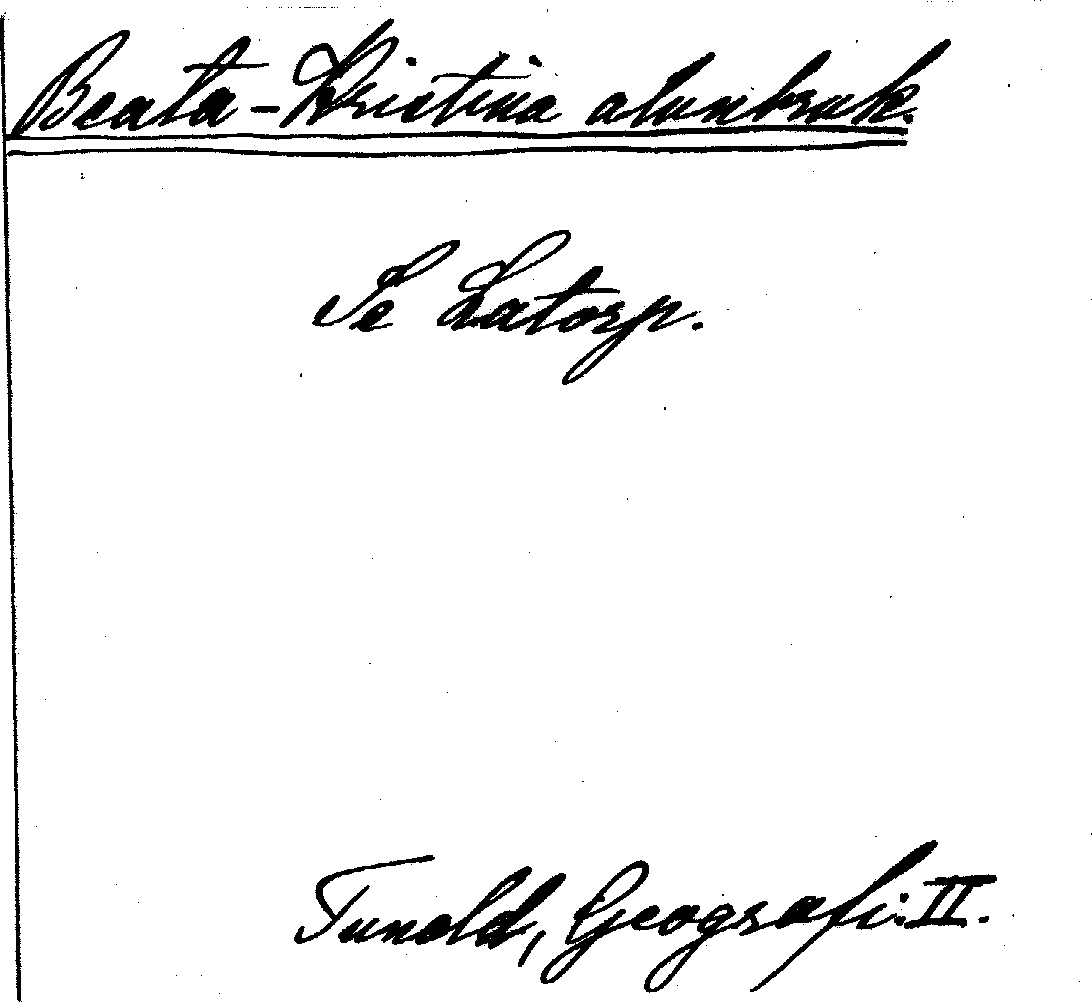 Beata-Kristina alunbruk.
Se Latorp.
Tuneld, Geografi. II.